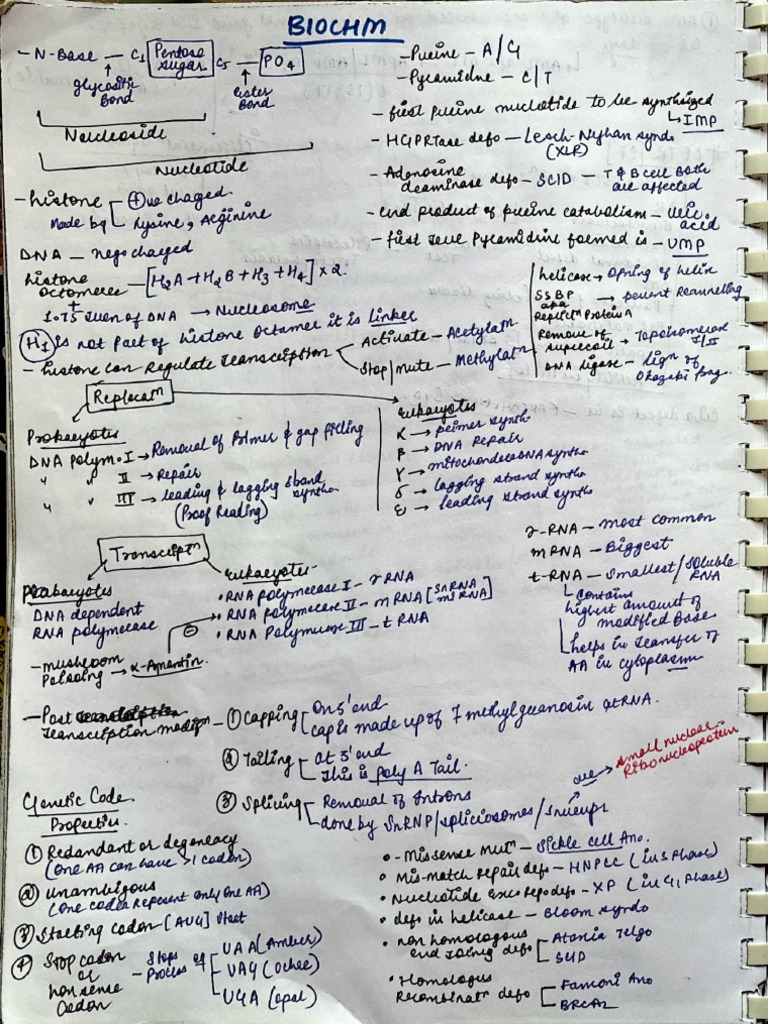 BIOCHM
- N-Base — C1 Pentose sugar C5 — PO4
glycositic Bond
Ester Bond
Nucleoside
Nucleotide
- Purine - A/G
- Pyramidne - C/T
- first purine nucleotide to be synthsized
↳ IMP
- HGPRTase defo - Lesch-Nyhan syndo
(XLR)
- Adenosine deaminase defo - SCID - T & B cell Both are affected
- end product of purine catabolism - Uric acid
- first true Pyramidine formed is - UMP
- histone [ +ve chaged.
Made by [ Lysine, Arginine
DNA - nego chaged
histone octomeres - [H2A + H2B + H3 + H4] x 2
+
1.75 turn of DNA → Nucleosome
H1 is not part of histone octamer it is linker
- histone can Regulate transcription
Activate - Acetylatn
Stop/mute - Methylatn
helicase → Opning of helix
SSBP aka Replictn Protein A → prevent Reannelling
Removal of supercoil → Topoisomerase I/II
DNA ligase - lign of Okazaki frag.
Replicatn
Prokaryotes
DNA Polym. I → Removal of Primer & gap filling
" " II → Repair
" " III → leading & lagging strand synthe
(Proof Reading)
Eukaryotes
α → primer synth
β → DNA Repair
γ → mitochondria DNA synthe
δ → lagging strand synthe
ε → leading strand synthe
Transcriptn
Prokaryotes
DNA dependent
RNA polymerase
- mushroom Poisoing → α-Amantin
Eukaryotes
• RNA polymerase I - r RNA
• RNA polymerase II - m RNA [SnRNA miRNA]
• RNA Polymerase III - t RNA
r-RNA - most common
mRNA - Biggest
t-RNA - Smallest/Soluble RNA
↳ contains highest amount of modified Base
↳ helps in transfer of AA in cytoplasm
- Post transcription modifn - ① Capping [ On 5' end
cap is made up of 7 methyl guanosin
② Tailing [ at 3' end
This is Poly A Tail.
③ Splicing [ Removal of Introns
done by SnRNP/spliciosomes/Snurps
are → small nuclear Ribonucleoprotein
Genetic Code
Properties
① Redundant or degeneacy
(One AA can have >1 codon)
② Unambigous
(One codon Represent Only One AA)
③ Starting codon [AUG] Start
④ Stop codon or non sense Codon - Stops Process of
UAA (Amber)
UAG (Ochre)
UGA (opal)
• - Missense mutn - Sickle cell Ano.
• Mis-match repair defo - HNPCC (in S Phase)
• Nucleotide Exco Repo defo - XP (in G1 Phase)
• defo in helicase - Bloom syndo
• non homologous end Joing defo [ Ataxia Telgo
SCID
• Homologus Recombinatn defo [ Fanconi Ano
BRCA2